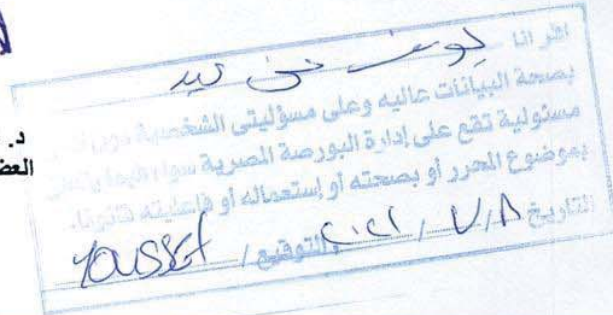 اقر انا يوسف
بصحة البيانات عاليه وعلى مسؤليتى الشخصية دون أدنى
مسئولية تقع على إدارة البورصة المصرية سواء فيما يتعلق
بموضوع المحرر أو بصحته أو إستعماله أو فاعليته قانونا.
التاريخ ٨ / ٧ / ٢٠٢١ التوقيع / YOUSSEF
د.
العض